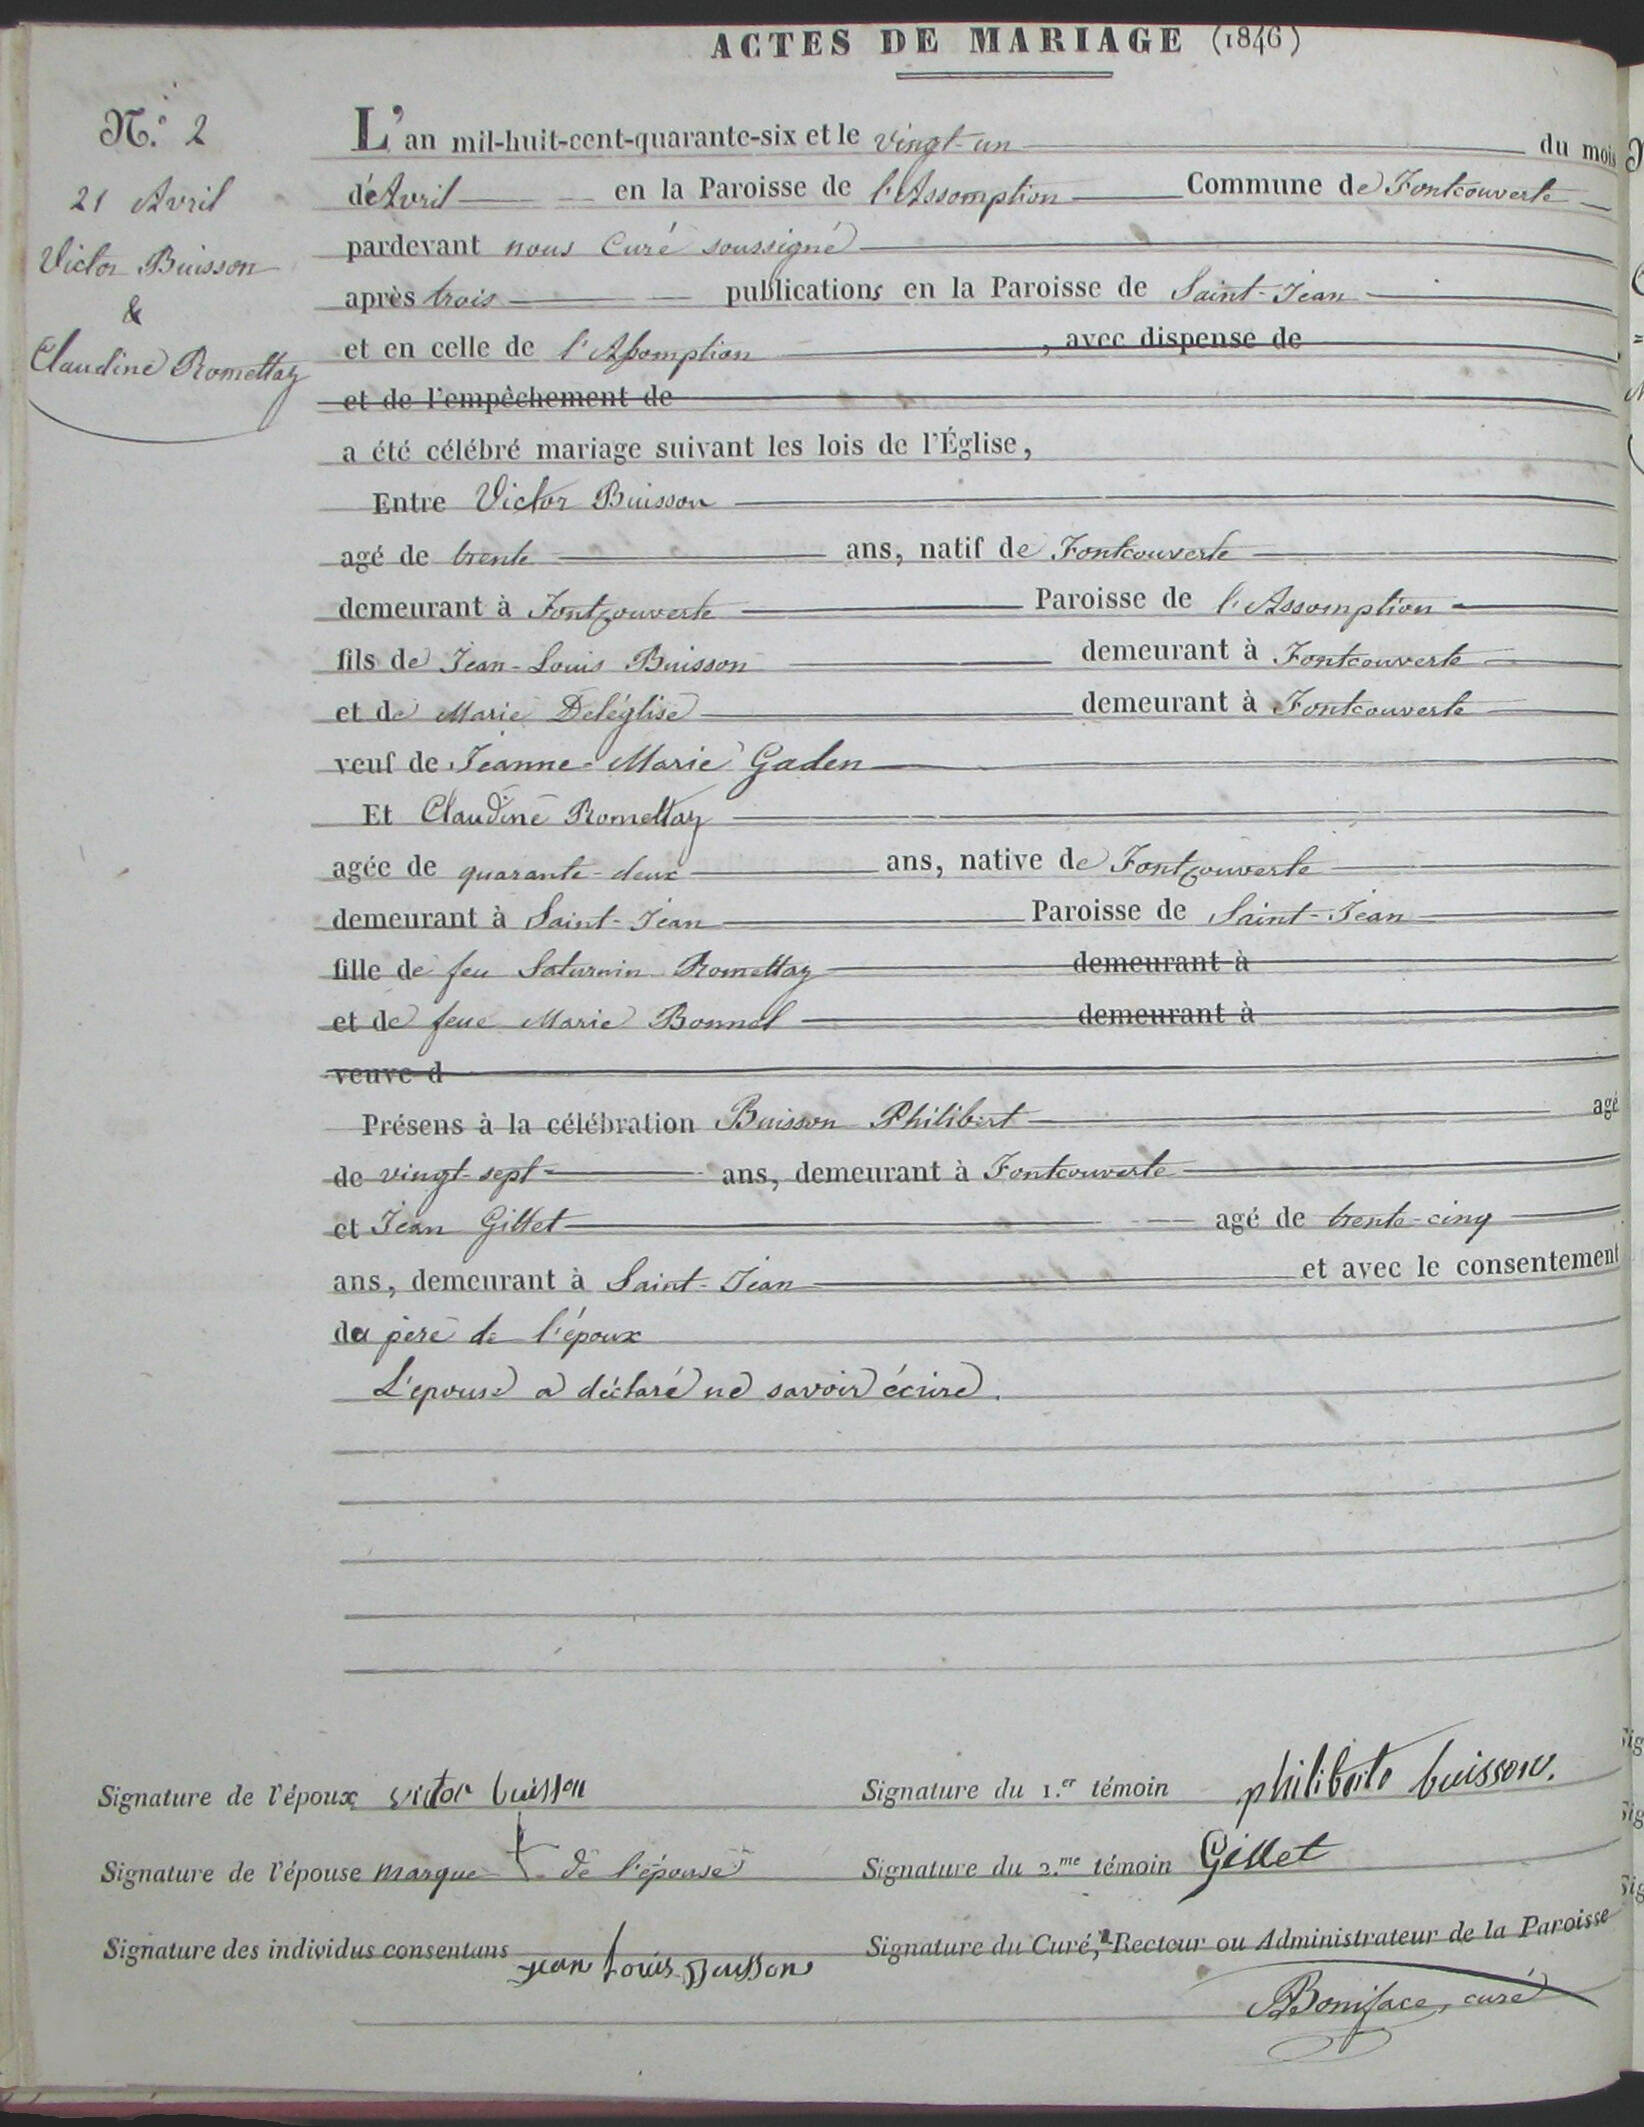 ACTES DE MARIAGE (1846)
N.º 2
21 Avril
Victor Buisson
&
Claudine Romettaz
L'an mil-huit-cent-quarante-six et le vingt-un du mois
d'Avril en la Paroisse de l'Assomption Commune de Fontcouverte
pardevant nous Curé soussigné
après trois publications en la Paroisse de Saint-Jean
et en celle de l'Assomption, avec dispense de
et de l'empêchement de
a été célébré mariage suivant les lois de l'Église,
Entre Victor Buisson
agé de trente ans, natif de Fontcouverte
demeurant à Fontcouverte Paroisse de l'Assomption
fils de Jean-Louis Buisson demeurant à Fontcouverte
et de Marie Deléglise demeurant à Fontcouverte
veuf de Jeanne-Marie Gaden
Et Claudine Romettaz
agée de quarante-deux ans, native de Fontcouverte
demeurant à Saint-Jean Paroisse de Saint-Jean
fille de feu Saturnin Romettaz demeurant à
et de feue Marie Bonnel demeurant à
veuve d
Présens à la célébration Buisson Philibert agé
de vingt-sept ans, demeurant à Fontcouverte
et Jean Gillet agé de trente-cinq
ans, demeurant à Saint-Jean et avec le consentement
du père de l'époux
L'epouse a déclaré ne savoir écrire.
Signature de l'époux victor buisson
Signature du 1.er témoin philiberte buisson.
Signature de l'épouse marque de l'épouse
Signature du 2.me témoin Gillet
Signature des individus consentans jean louis Buisson
Signature du Curé, Recteur ou Administrateur de la Paroisse
Boniface, curé